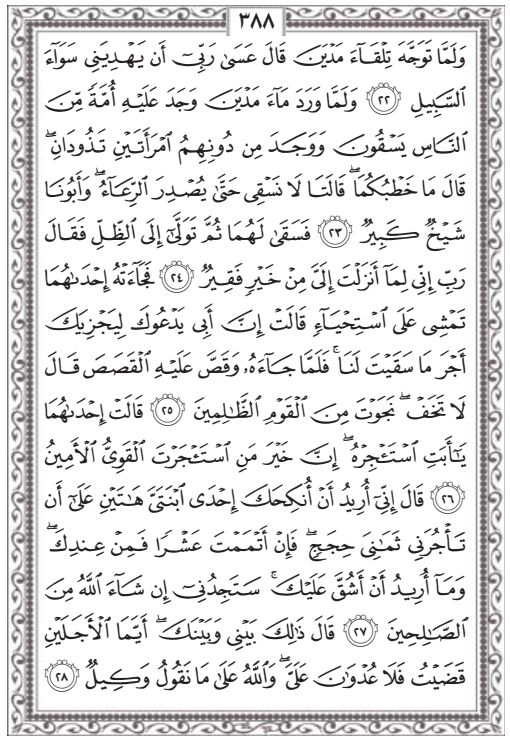 ٣٨٨
وَلَمَّا تَوَجَّهَ تِلْقَآءَ مَدْيَنَ قَالَ عَسَىٰ رَبِّىٓ أَن يَهْدِيَنِى سَوَآءَ
ٱلسَّبِيلِ ٢٢ وَلَمَّا وَرَدَ مَآءَ مَدْيَنَ وَجَدَ عَلَيْهِ أُمَّةً مِّنَ
ٱلنَّاسِ يَسْقُونَ وَوَجَدَ مِن دُونِهِمُ ٱمْرَأَتَيْنِ تَذُودَانِۖ
قَالَ مَا خَطْبُكُمَاۖ قَالَتَا لَا نَسْقِى حَتَّىٰ يُصْدِرَ ٱلرِّعَآءُۖ وَأَبُونَا
شَيْخٌ كَبِيرٌ ٢٣ فَسَقَىٰ لَهُمَا ثُمَّ تَوَلَّىٰٓ إِلَى ٱلظِّلِّ فَقَالَ
رَبِّ إِنِّى لِمَآ أَنزَلْتَ إِلَىَّ مِنْ خَيْرٍ فَقِيرٌ ٢٤ فَجَآءَتْهُ إِحْدَىٰهُمَا
تَمْشِى عَلَى ٱسْتِحْيَآءٍ قَالَتْ إِنَّ أَبِى يَدْعُوكَ لِيَجْزِيَكَ
أَجْرَ مَا سَقَيْتَ لَنَاۚ فَلَمَّا جَآءَهُۥ وَقَصَّ عَلَيْهِ ٱلْقَصَصَ قَالَ
لَا تَخَفْۖ نَجَوْتَ مِنَ ٱلْقَوْمِ ٱلظَّـٰلِمِينَ ٢٥ قَالَتْ إِحْدَىٰهُمَا
يَـٰٓأَبَتِ ٱسْتَـْٔجِرْهُۖ إِنَّ خَيْرَ مَنِ ٱسْتَـْٔجَرْتَ ٱلْقَوِىُّ ٱلْأَمِينُ
٢٦ قَالَ إِنِّىٓ أُرِيدُ أَنْ أُنكِحَكَ إِحْدَى ٱبْنَتَىَّ هَـٰتَيْنِ عَلَىٰٓ أَن
تَأْجُرَنِى ثَمَـٰنِىَ حِجَجٍۖ فَإِنْ أَتْمَمْتَ عَشْرًا فَمِنْ عِندِكَۖ
وَمَآ أُرِيدُ أَنْ أَشُقَّ عَلَيْكَۚ سَتَجِدُنِىٓ إِن شَآءَ ٱللَّهُ مِنَ
ٱلصَّـٰلِحِينَ ٢٧ قَالَ ذَٰلِكَ بَيْنِى وَبَيْنَكَۖ أَيَّمَا ٱلْأَجَلَيْنِ
قَضَيْتُ فَلَا عُدْوَٰنَ عَلَىَّۖ وَٱللَّهُ عَلَىٰ مَا نَقُولُ وَكِيلٌ ٢٨